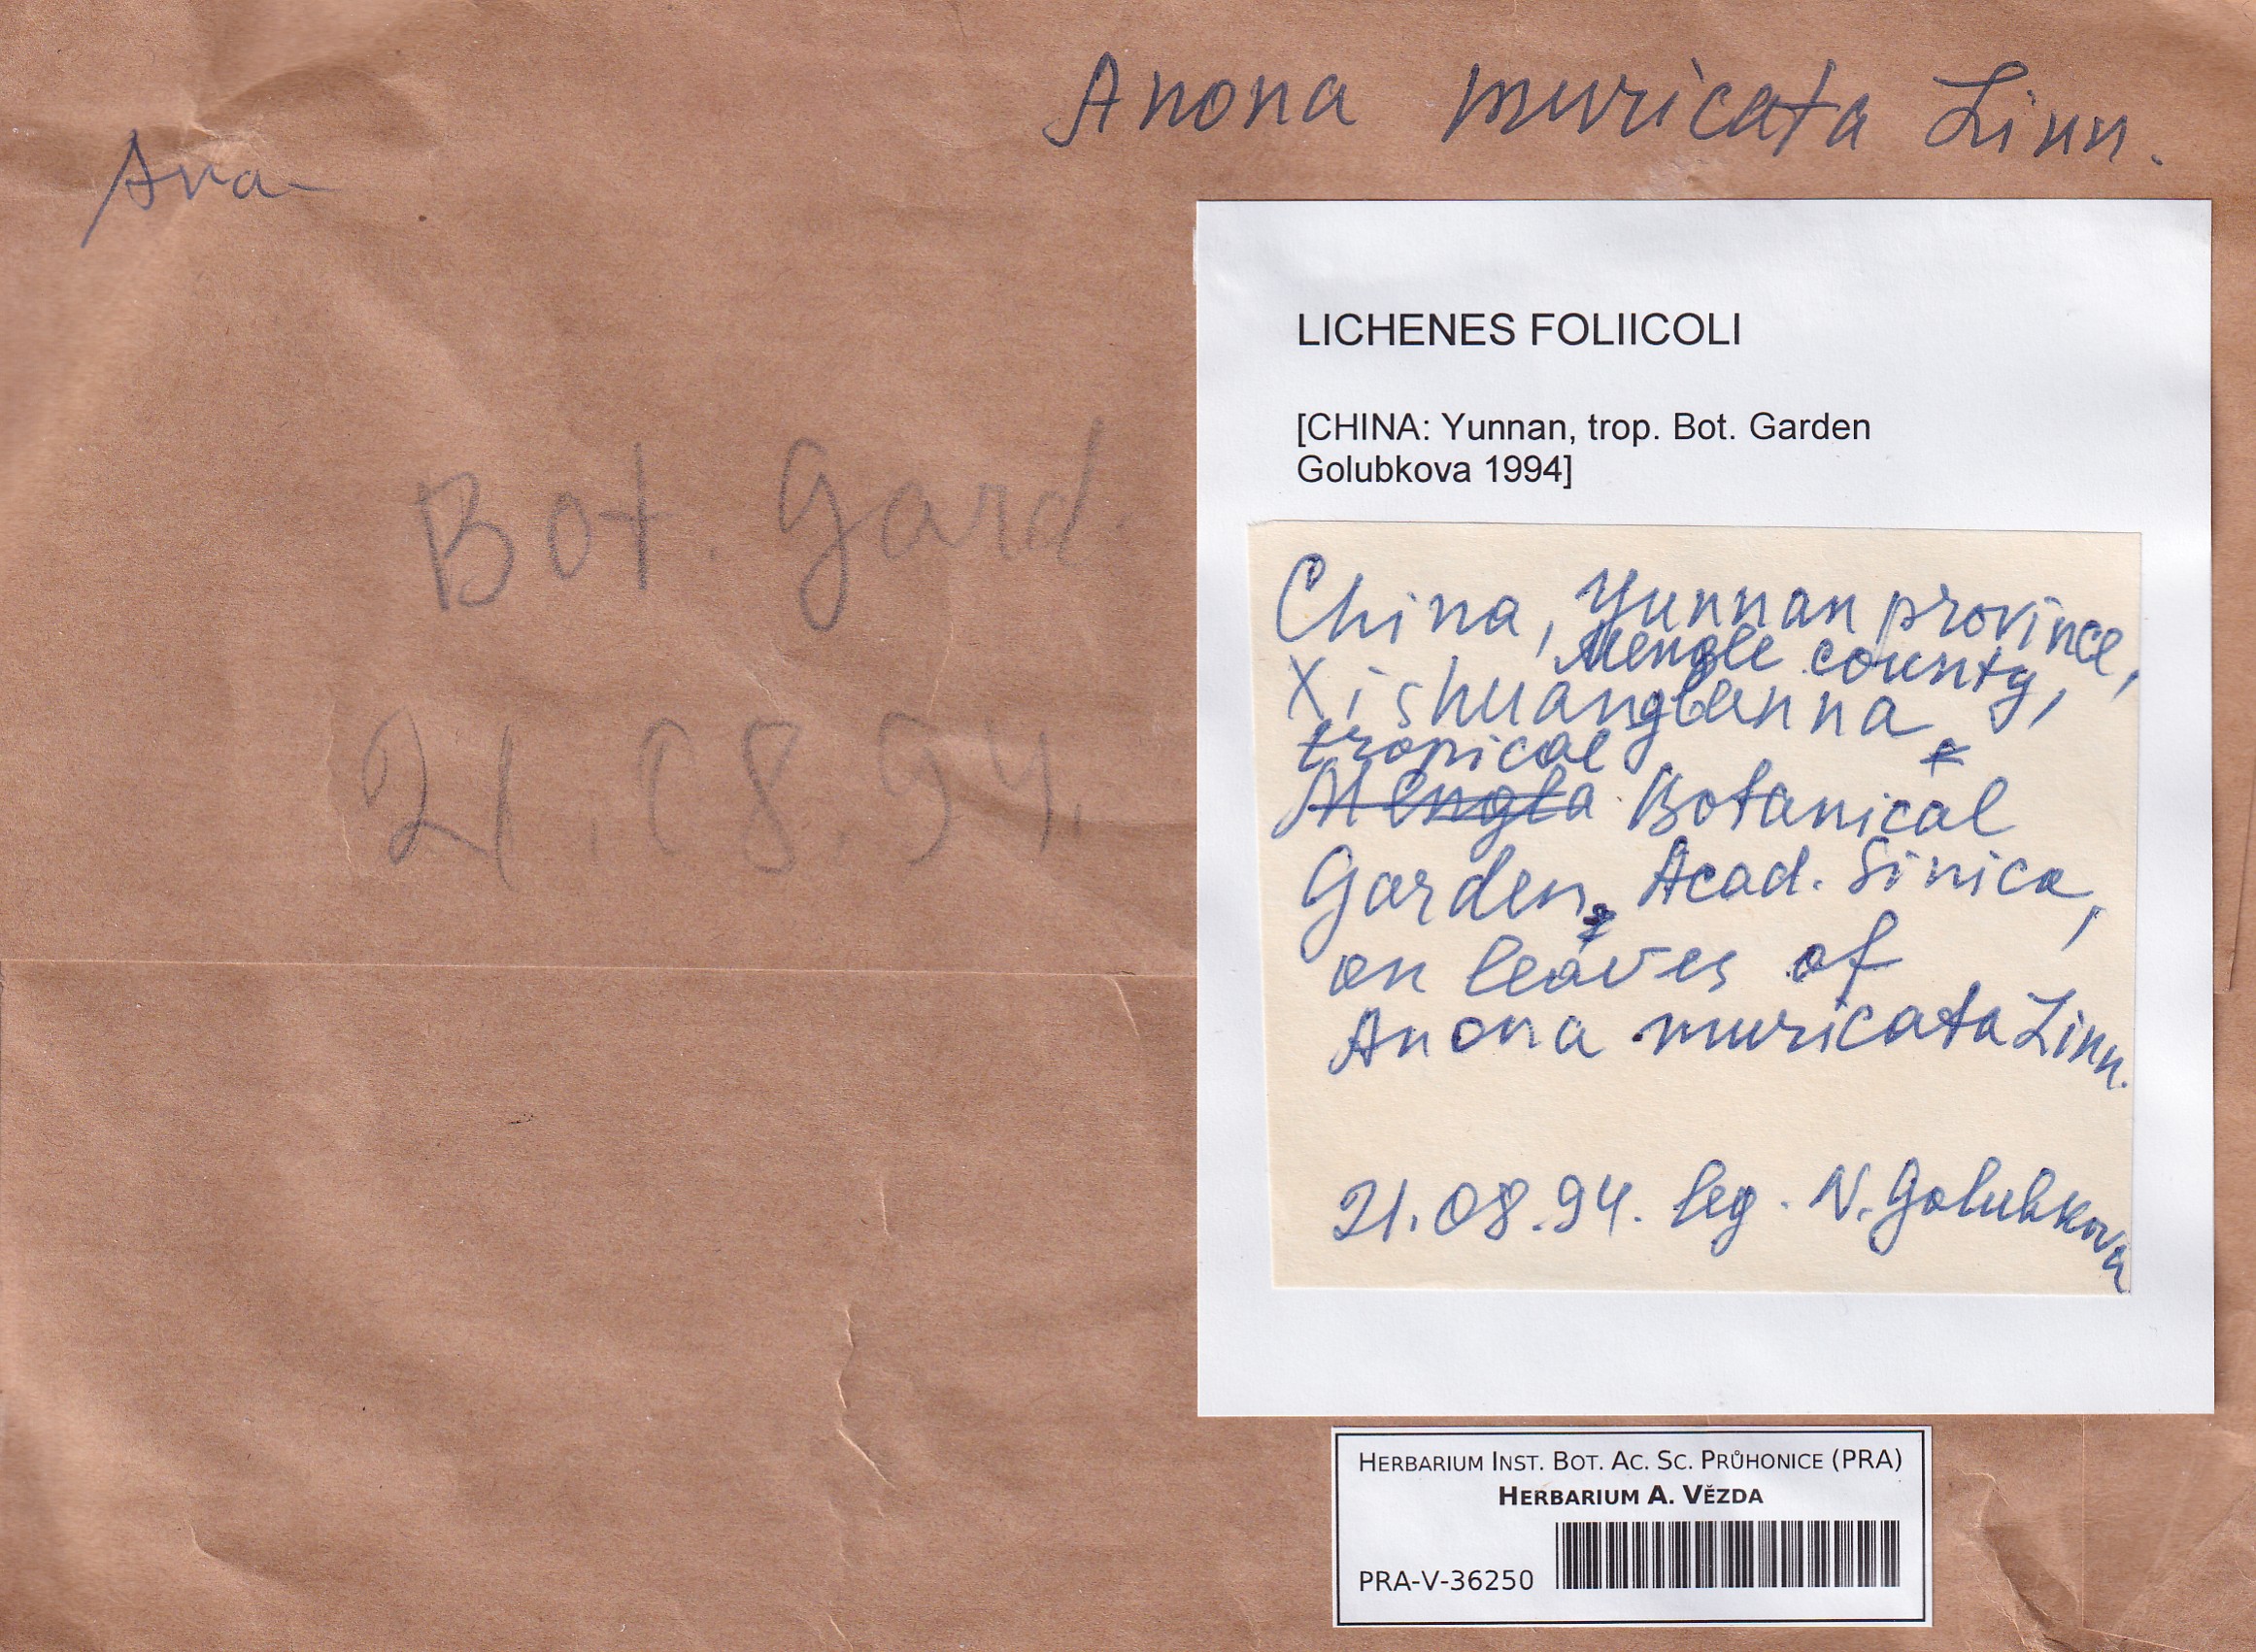 Anona muricata Linn.
Ana
Bot. Gard.
21.08.94.
LICHENES FOLIICOLI
[CHINA: Yunnan, trop. Bot. Garden
Golubkova 1994]
China, Yunnan province,
Mengle county,
Xishuangbanna
tropical
Mengla Botanical
Garden, Acad. Sinica,
on leaves of
Anona muricata Linn.
21.08.94. leg. N. Golubkova
HERBARIUM INST. BOT. AC. SC. PRŮHONICE (PRA)
HERBARIUM A. VĚZDA
PRA-V-36250